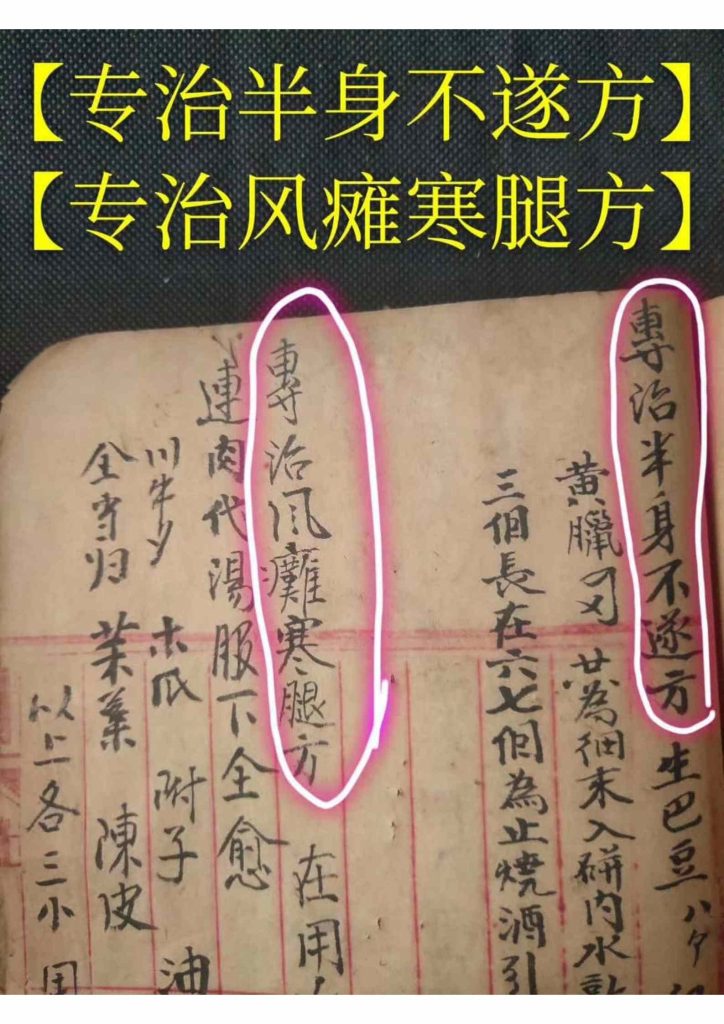 【专治半身不遂方】
【专治风瘫寒腿方】
專治半身不遂方 生巴豆
黄臘 共為細末入研内水
三個長在六七個為止燒酒引
專治风癱寒腿方 在用
連肉代湯服下全愈
川牛夕 木瓜 附子 油
全当归 茱萸 陳皮
以上各三小